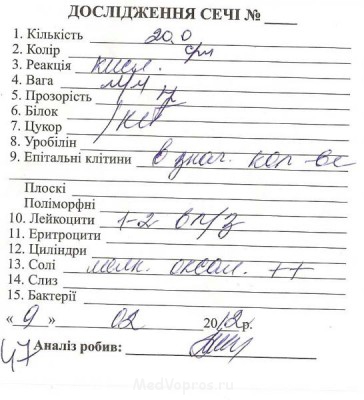 ДОСЛІДЖЕННЯ СЕЧІ №
1. Кількість 20,0
2. Колір
3. Реакція кисл.
4. Вага м/м
5. Прозорість
6. Білок
7. Цукор
8. Уробілін
9. Епітальні клітини в знач. кол-ве
Плоскі
Поліморфні
10. Лейкоцити 1-2 в п/з
11. Еритроцити
12. Циліндри
13. Солі мелк. оксал. ++
14. Слиз
15. Бактерії
« 9 » 02 2012р.
47 Аналіз робив:
MedVopros.ru